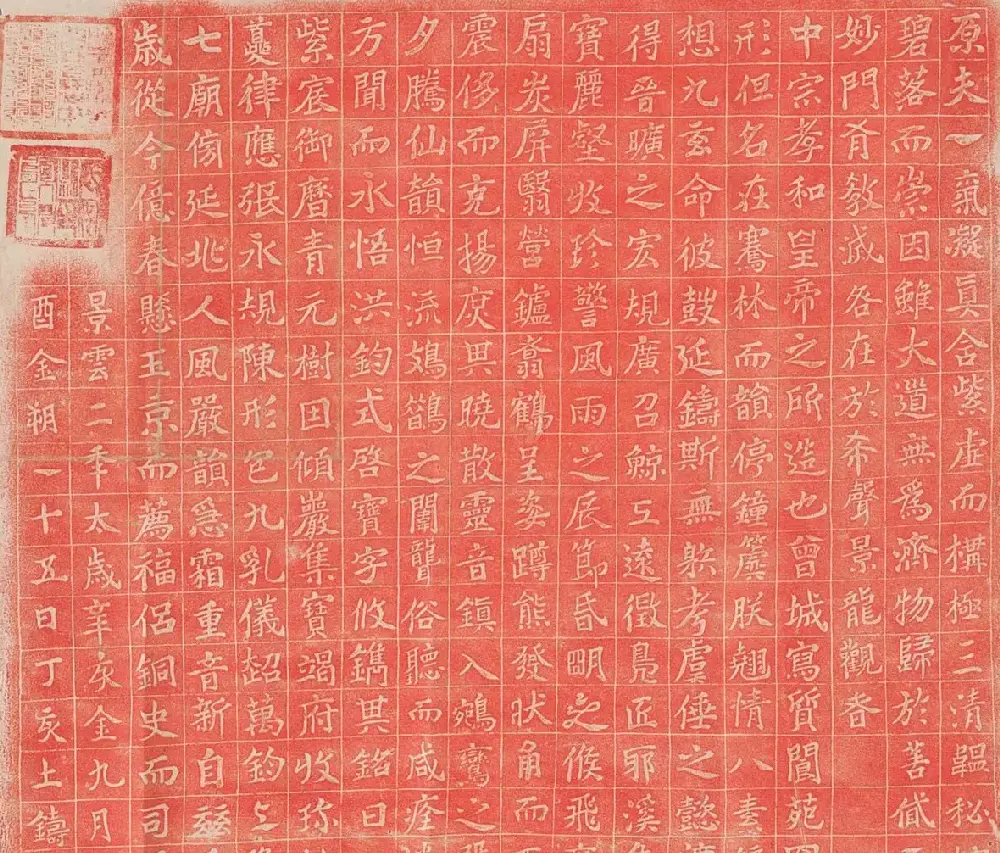 原夫一氣凝真含紫虛而構極三清韞秘
碧落而崇因雖大道無為濟物歸於善貸
妙門有教滅咎在於希聲景龍觀者
中宗孝和皇帝之所造也曾城寫質閬苑
形但名在騫林而韻停鐘簴朕翹情八素
想九玄命彼鼓延鑄斯無躲考虞倕之懿
得晉曠之宏規廣召鯨工遠徵鳧匠耶溪
寶麗壑收珍警風雨之辰節昏明之候飛
扇炭屏翳營鑪翥鶴呈姿蹲熊發狀角而
震侈而克揚庚與曉散靈音鎮入鵷鸞之
夕騰仙韻恒流鳷鵲之闈聾俗聽而咸痊
方聞而永悟洪鈞式啓寶字攸鐫其銘曰
紫宸御曆青元樹因傾巖集寶竭府收珍
夔律應張永規陳形包九乳儀超萬鈞上
七廟傍延兆人風嚴韻急霜重音新自茲
歲從今億春懸玉京而薦福侶銅史而司
景雲二年太歲辛亥金九月
酉金朔一十五日丁亥土鑄